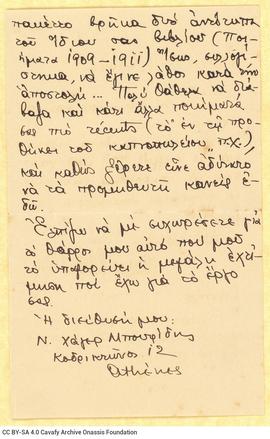 πακέτο βρῆκα δυό ἀντίτυπα
τοῦ ἴδιου σας βιβλίου (Ποι-
ήματα 1909–1911) Ἴσως, συλλογί-
στηκα, νὰ ἔγινε λάθος κατὰ τὴν
ἀποστολή... Πολύ θἄθελα νὰ διά-
βαζα καὶ κάτι ἄλλα ποιήματα
σας πιὸ récents (τὸ ἐν τῇ προ-
θήκει τοῦ καπνοπωλείου π.χ.)
καὶ καθὼς ξέρετε εἶνε ἀδύνατο
νὰ τὰ προμηθευτῇ κανεὶς ἐ-
δῶ.
Ἐλπίζω νὰ μὲ συχωρέσετε γιὰ
τὸ θάρρος μου αὐτὸ ποὺ μοῦ
τὸ ὑπαγορεύει ἡ μεγάλη ἐχτί-
μηση ποὺ ἔχω γιὰ τὸ ἔργο
σας.
Ἡ διεύθυνσή μου:
Ν. Χάγερ Μπουφίδης
Κοδριγκτῶνος 12
Athènes
CC BY-SA 4.0 Cavafy Archive Onassis Foundation